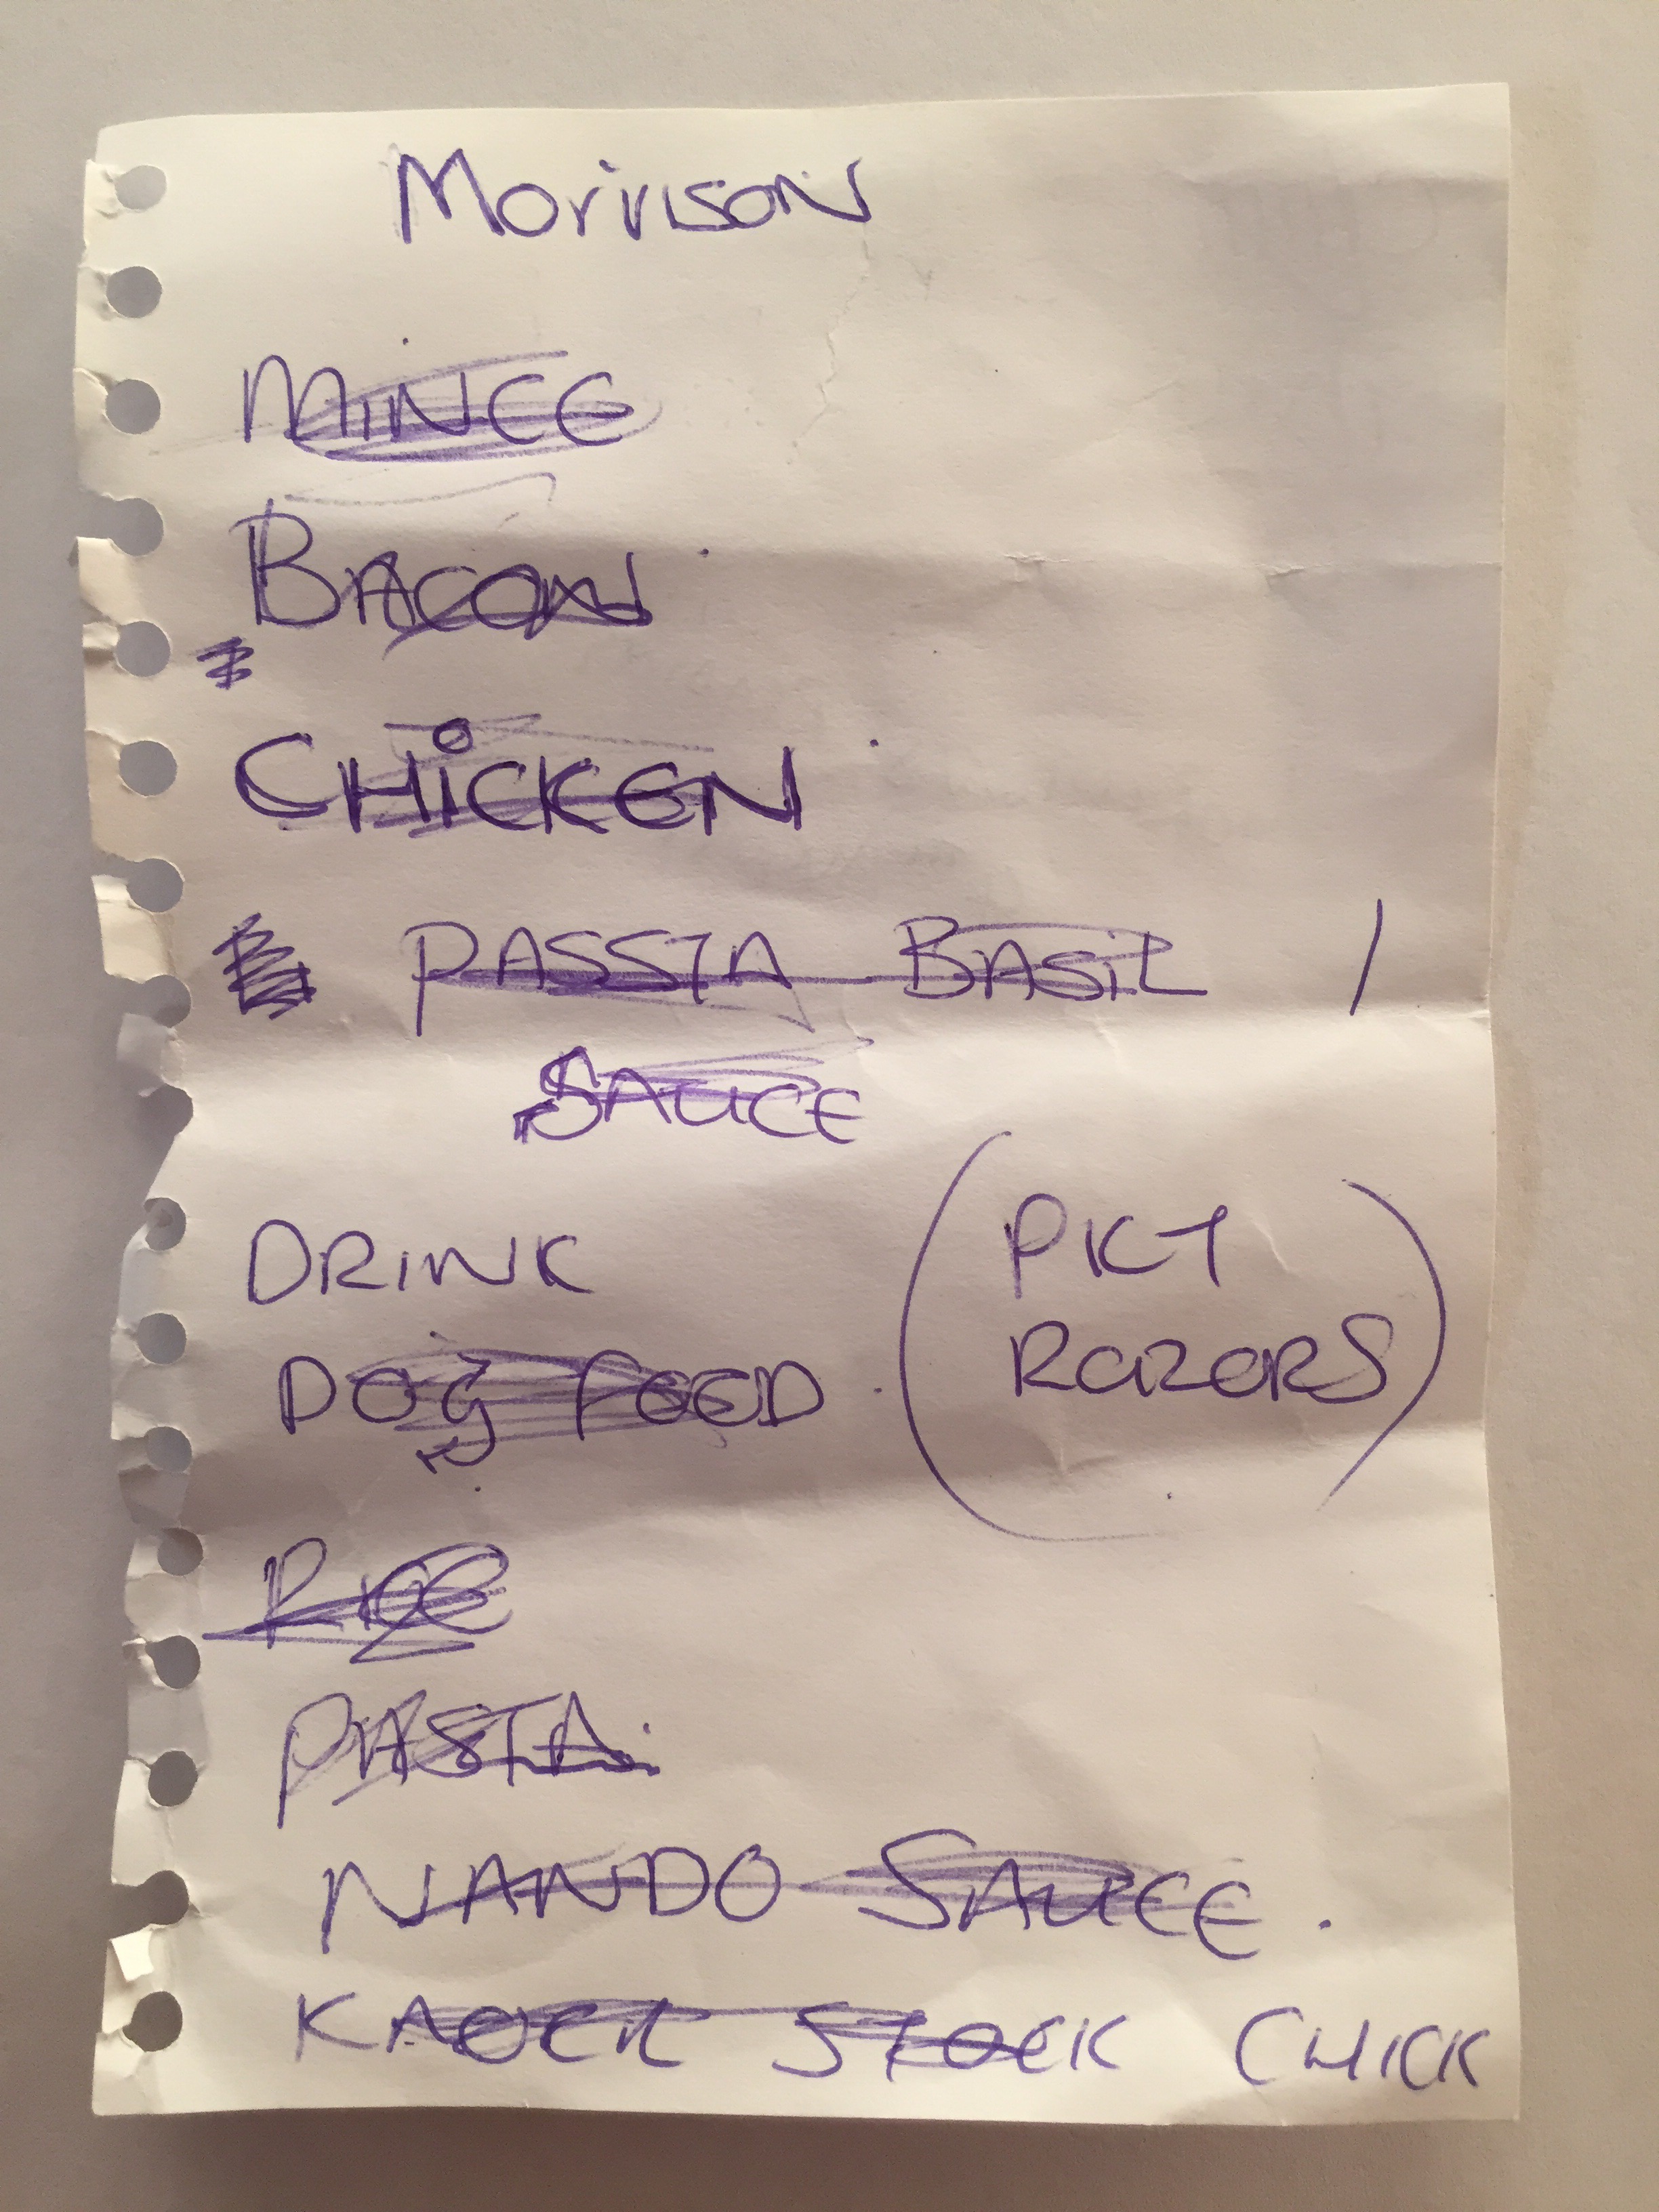 Morrison
MINCE
BACON
CHICKEN
PASSTA BASIL /
SAUCE
DRINK
(PKT
RAZORS)
DOG FEED.
RICE
PASTA.
NANDO SAUCE.
STOCK CHICK